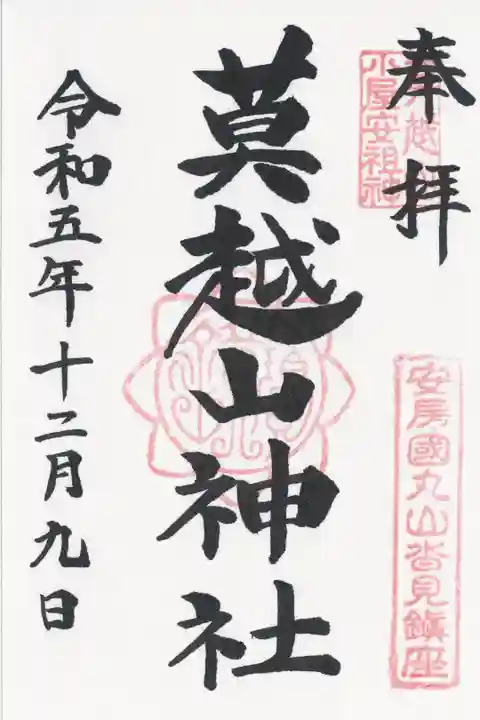 奉拝
小屋安祖社
安房國丸山沓見鎮座
莫越山神社
令和五年十二月九日